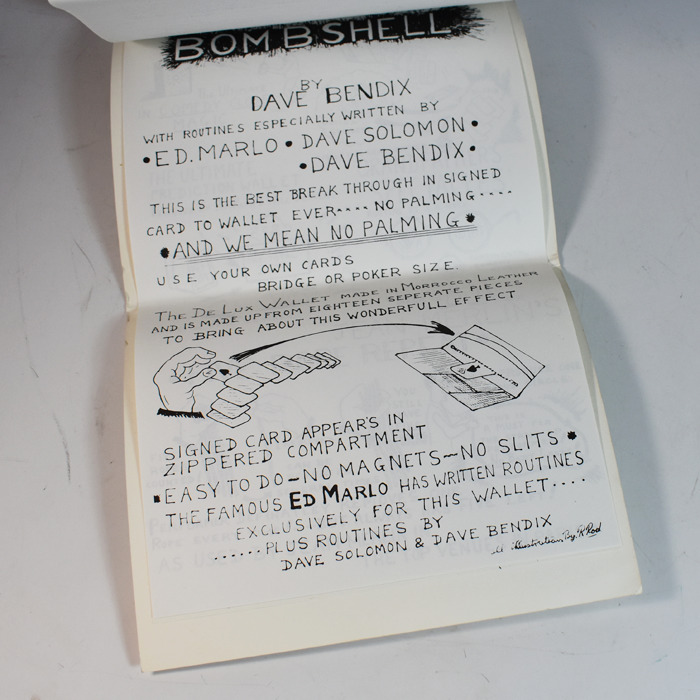 BOMBSHELL
BY
DAVE BENDIX
WITH ROUTINES ESPECIALLY WRITTEN BY
•ED. MARLO • DAVE SOLOMON •
•DAVE BENDIX•
THIS IS THE BEST BREAK THROUGH IN SIGNED
CARD TO WALLET EVER.... NO PALMING....
•AND WE MEAN NO PALMING•
USE YOUR OWN CARDS
BRIDGE OR POKER SIZE.
THE DE LUX WALLET MADE IN MORROCCO LEATHER
AND IS MADE UP FROM EIGHTEEN SEPERATE PIECES
TO BRING ABOUT THIS WONDERFULL EFFECT
SIGNED CARD APPEAR'S IN
ZIPPERED COMPARTMENT
•EASY TO DO–NO MAGNETS–NO SLITS•
THE FAMOUS ED MARLO HAS WRITTEN ROUTINES
EXCLUSIVELY FOR THIS WALLET....
......PLUS ROUTINES BY
DAVE SOLOMON & DAVE BENDIX
illustration By